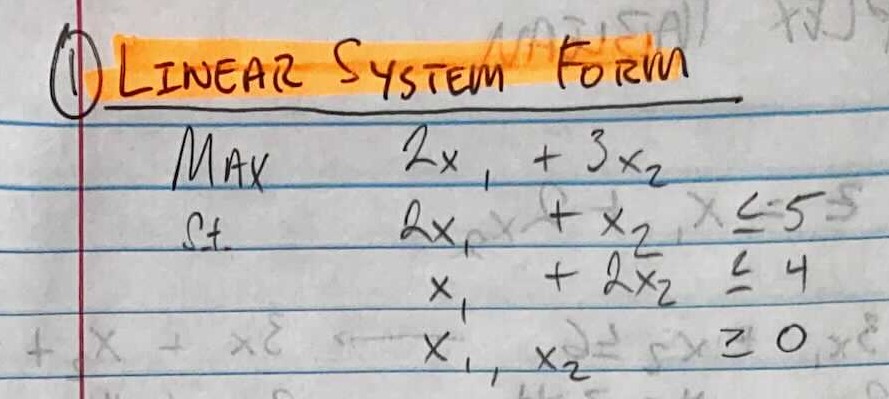 ① LINEAR SYSTEM FORM
MAX 2x₁ + 3x₂
St. 2x₁ + x₂ ≤ 5
x₁ + 2x₂ ≤ 4
x₁, x₂ ≥ 0